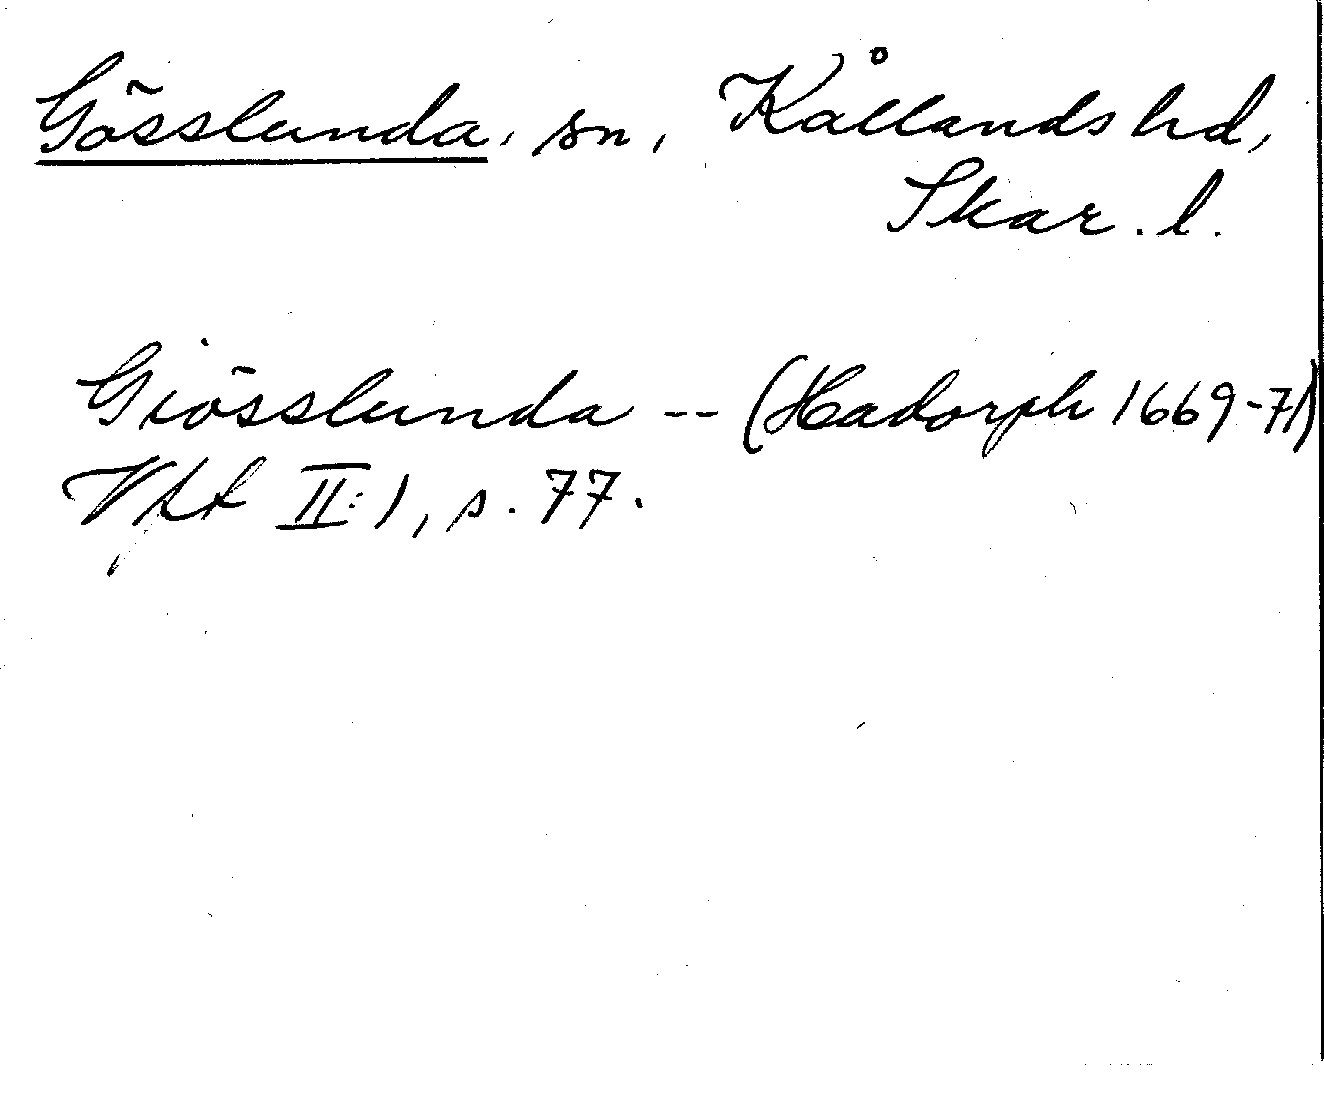 Gösslunda, sn, Kållands hd,
Skar. l.
Giösslunda -- (Hadorph 1669-71)
Vfft II:1, s. 77.